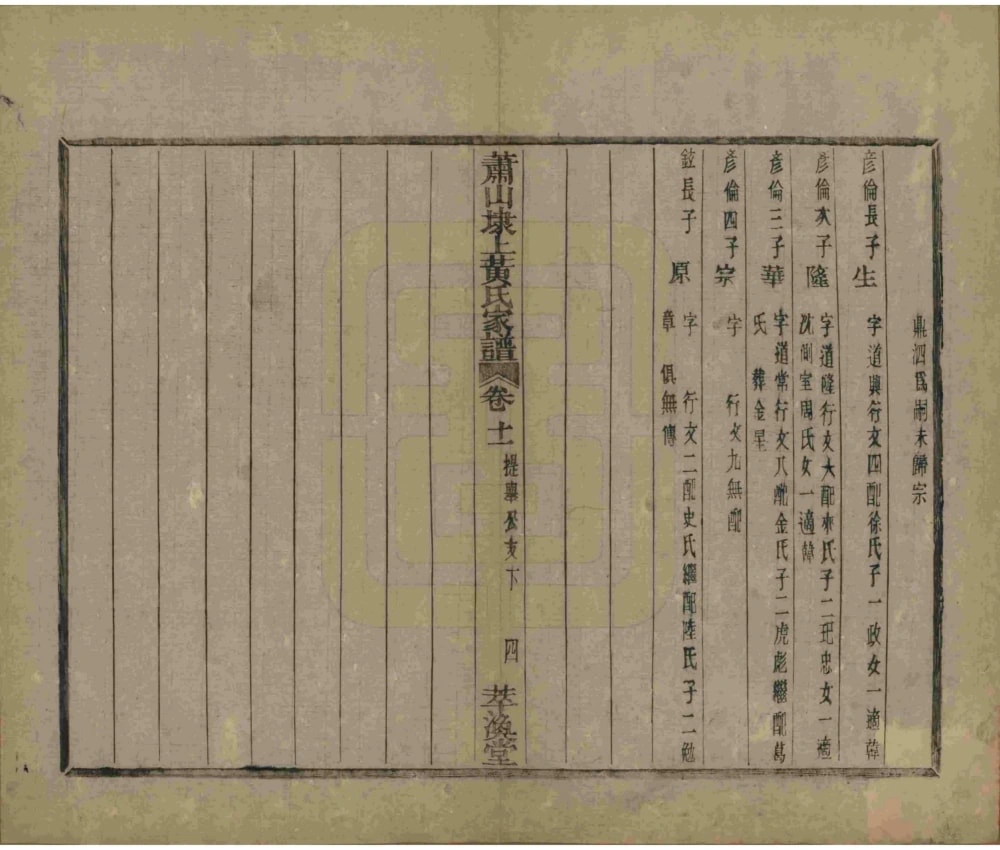 鼎泗爲嗣未歸宗
彦倫長子 生 字道興行文四配徐氏子一政女一適韓
彦倫次子 隆 字道隆行文六配來氏子二玘忠女一適
沈側室周氏女一適韓
彦倫三子 華 字道常行文八配金氏子二虎彪繼配葛
氏 葬金星
彦倫四子 宗 字 行文九無配
鉉長子 原 字 行文二配史氏繼配陸氏子二勉
章 俱無傳
蕭山埭上黃氏家譜 卷十一 提舉公支下 四 萃渙堂